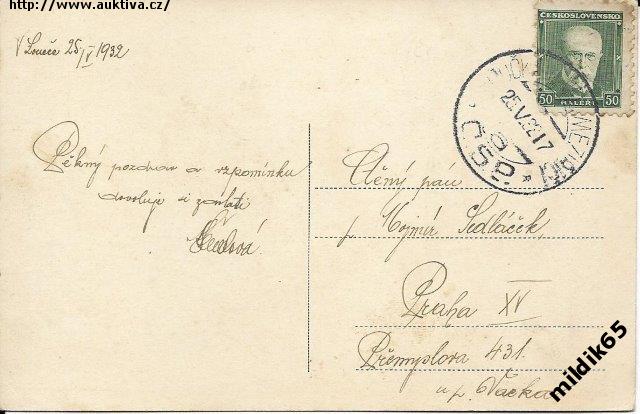 http://www.auktiva.cz/
V Loučce 25/V 1932
Pěkný pozdrav a vzpomínku
dovoluje si zaslati
ČESKOSLOVENSKO
50 HALÉŘŮ 50
25.V.32.17
ČSP
Učený pán
p. Hojmír Sedláček
Praha XV
Přemyslova 431.
u p. Vacka
mildik65